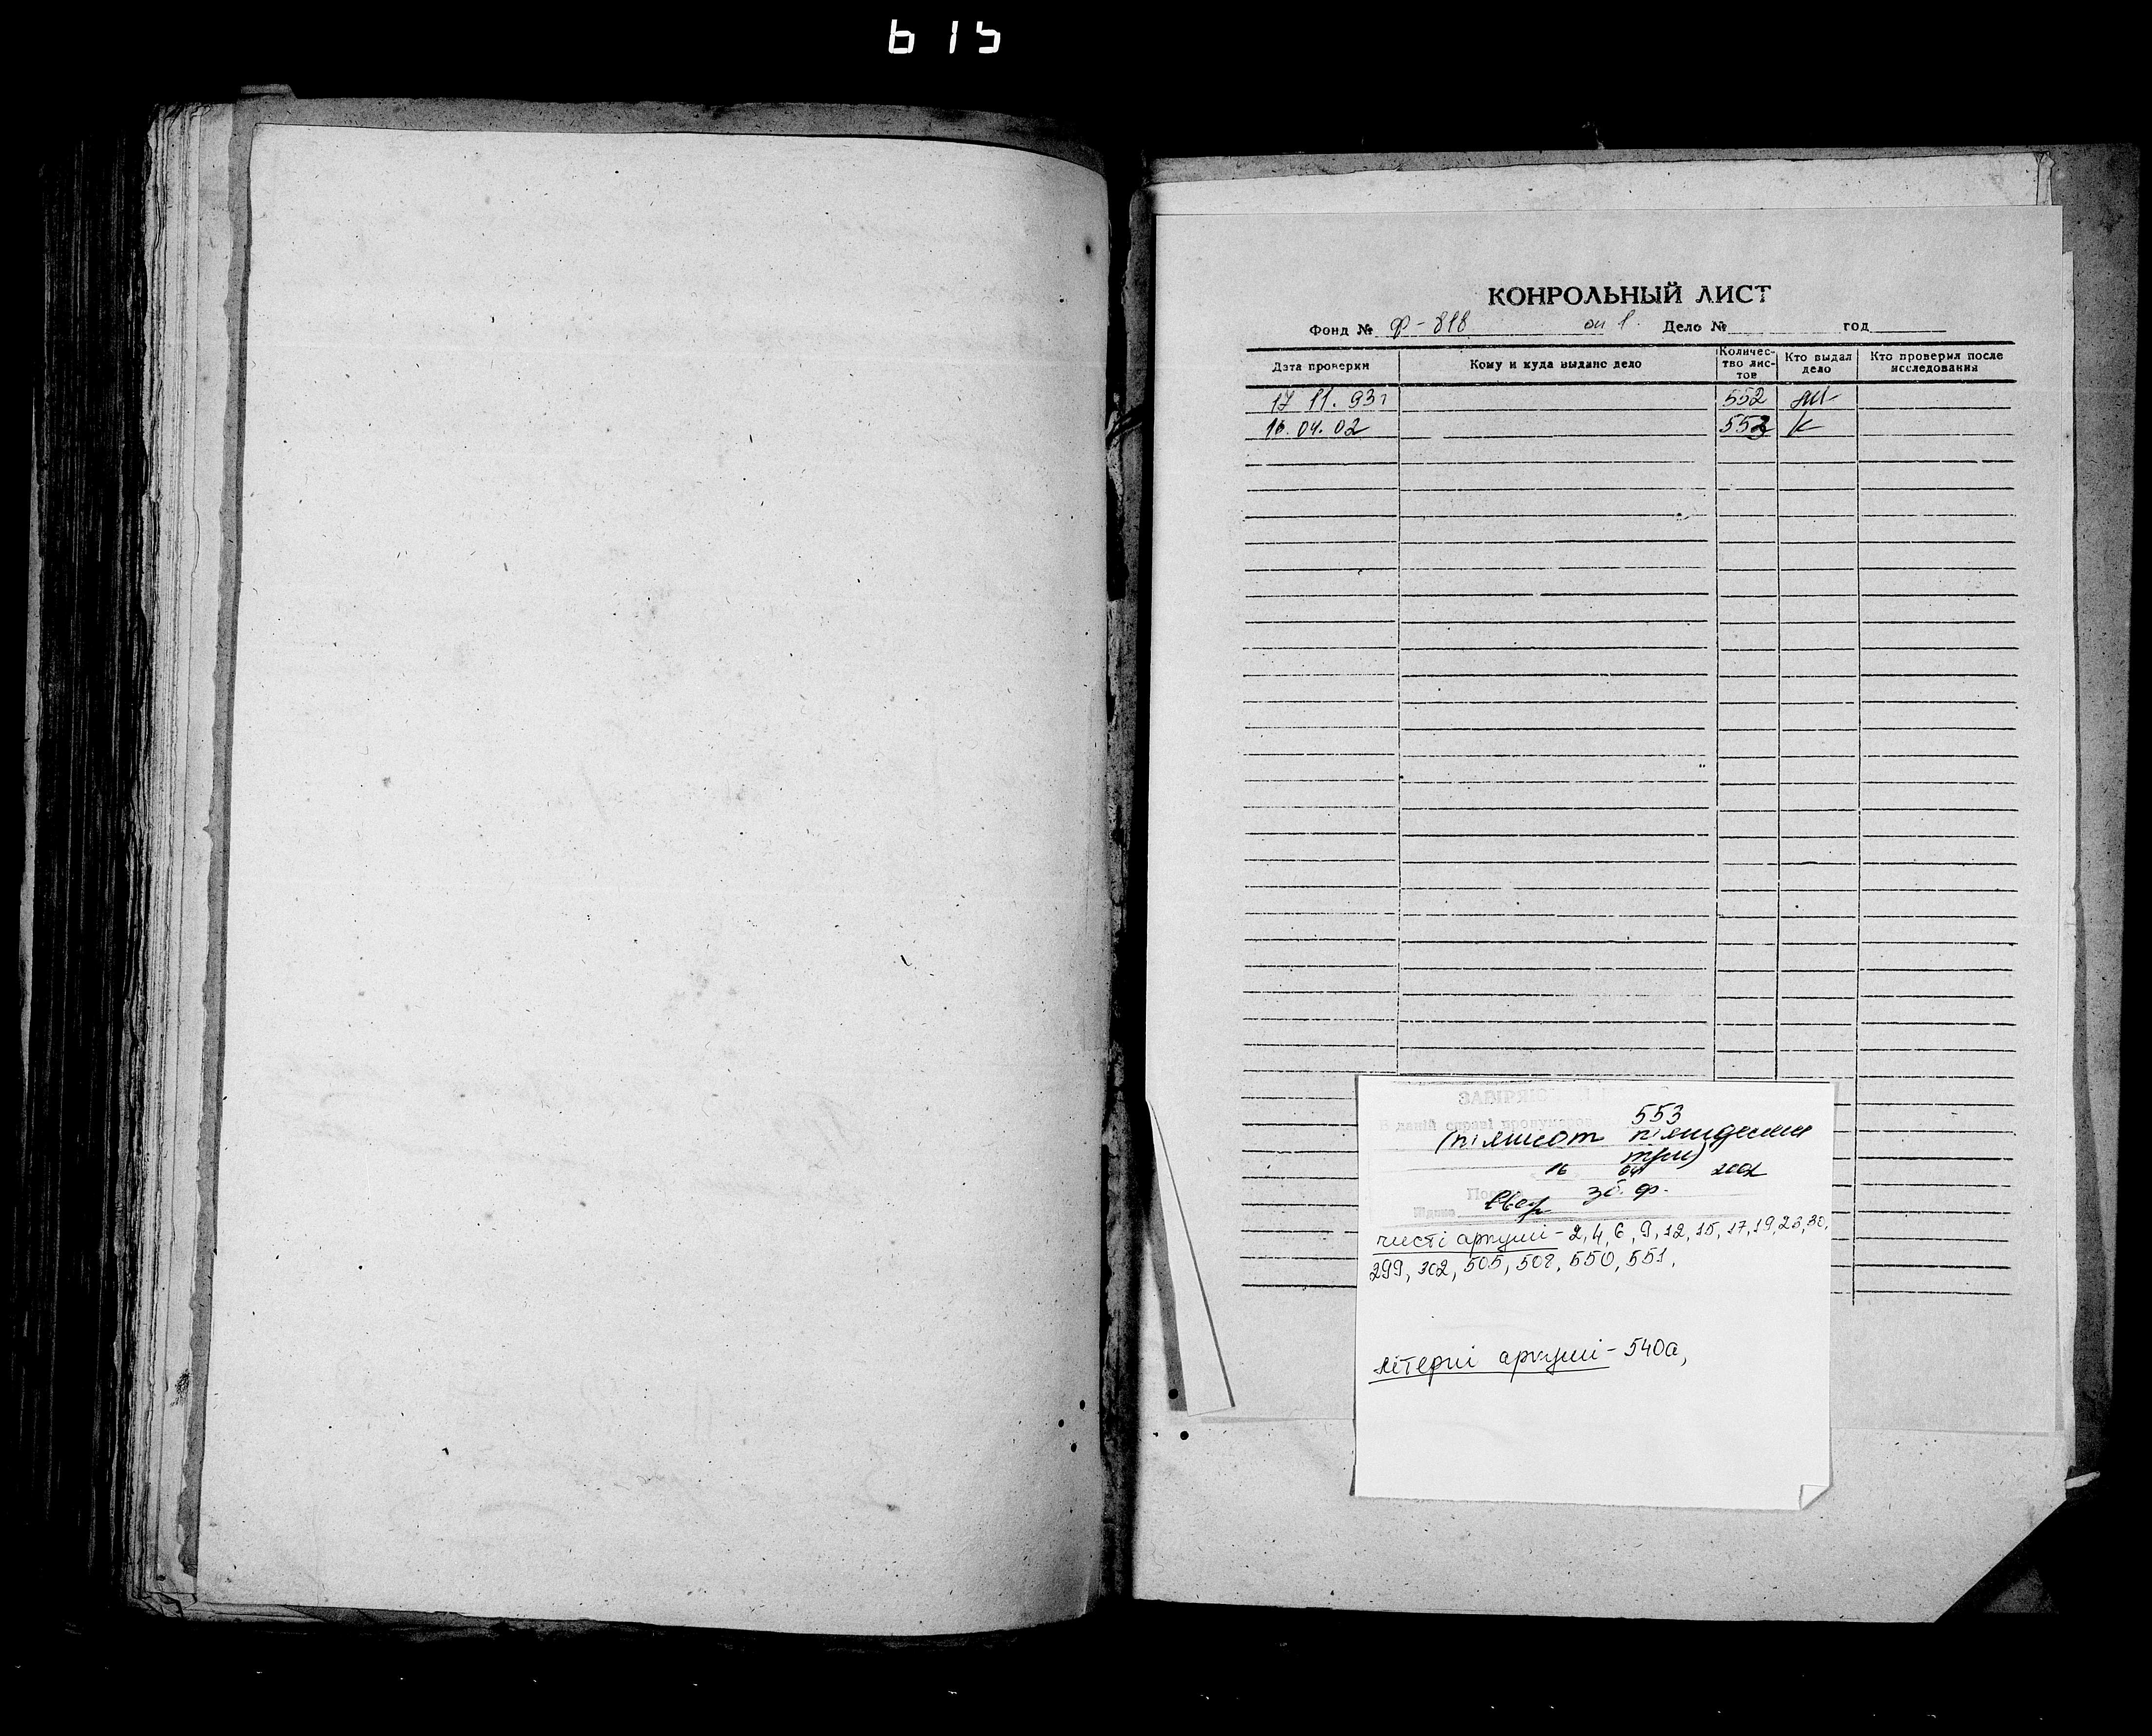 615
КОНРОЛЬНЫЙ ЛИСТ
Фонд № Ф-818 оп 1. Дело № год
Дата проверки Кому и куда выдано дело Количес-тво лис-тов Кто выдал дело Кто проверил после исследования
17 11. 93г 552
16. 04. 02 553
ЗАВІРЯ
В даній справі пронумеров 553
(п'ятсот п'ятдесят
три)
16 04 2002
зб. ф.
Підпис
чисті аркуші - 2, 4, 6, 9, 12, 15, 17, 19, 23, 30,
299, 302, 505, 508, 550, 551,
літерні аркуші - 540а,